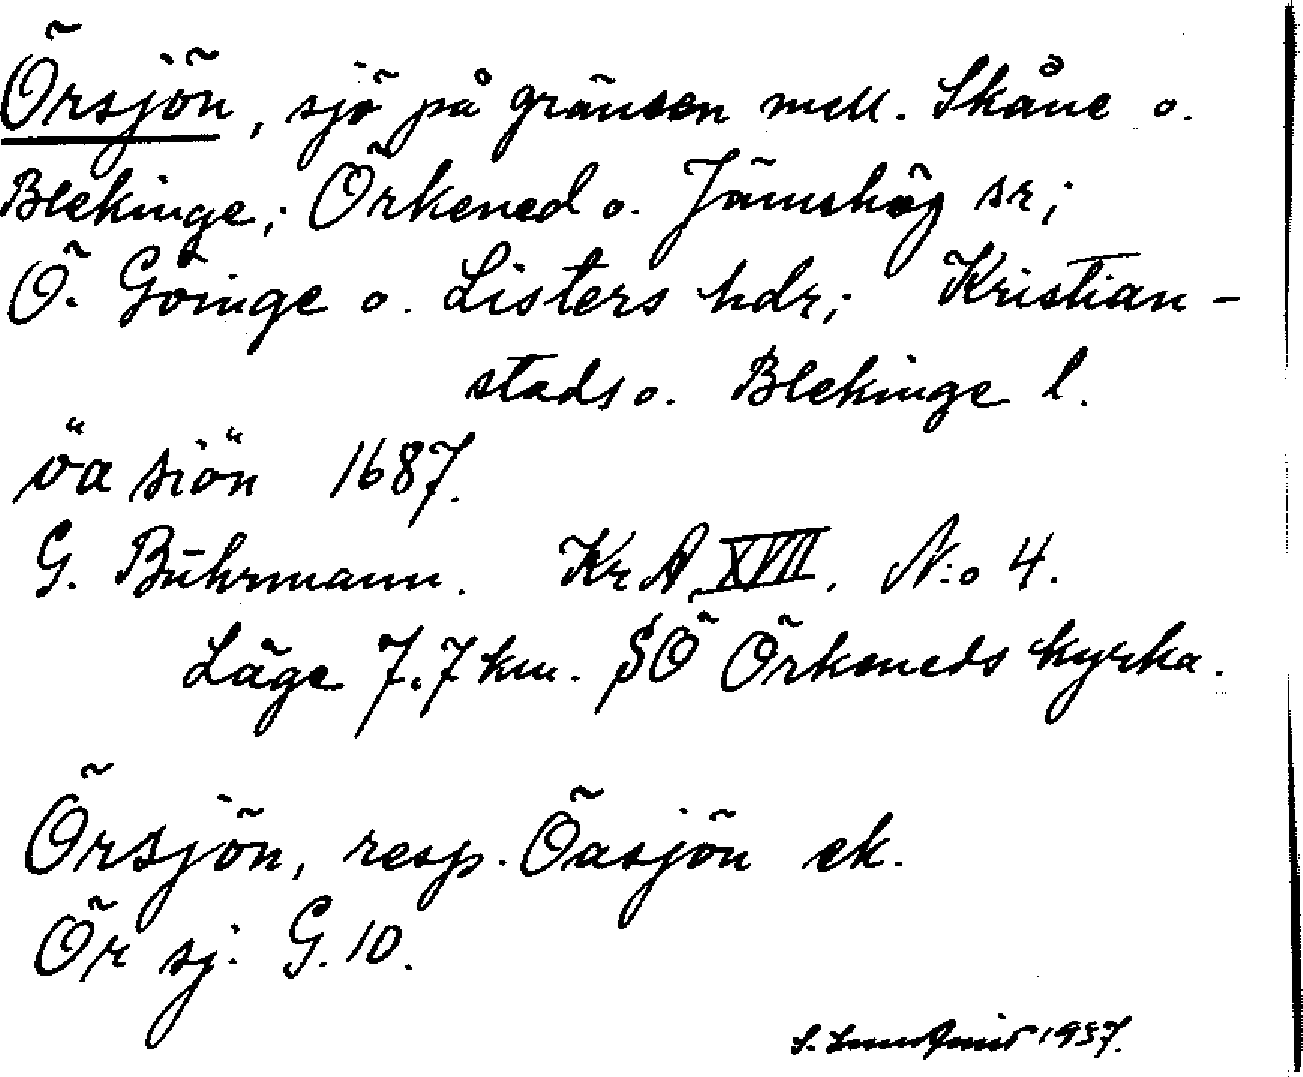 Örsjön, sjö på gränsen mell. Skåne o.
Blekinge; Örkened o. Jämshög sr;
Ö. Göinge o. Listers hdr; Kristian-
stads o. Blekinge l.
öa siön 1687.
G. Buhrmann. KrA XVII. N:o 4.
Läge 7.7 km. SÖ Örkeneds kyrka.
Örsjön, resp. Öasjön ek.
Ör sj. G. 10.
S. Lundquist 1937.